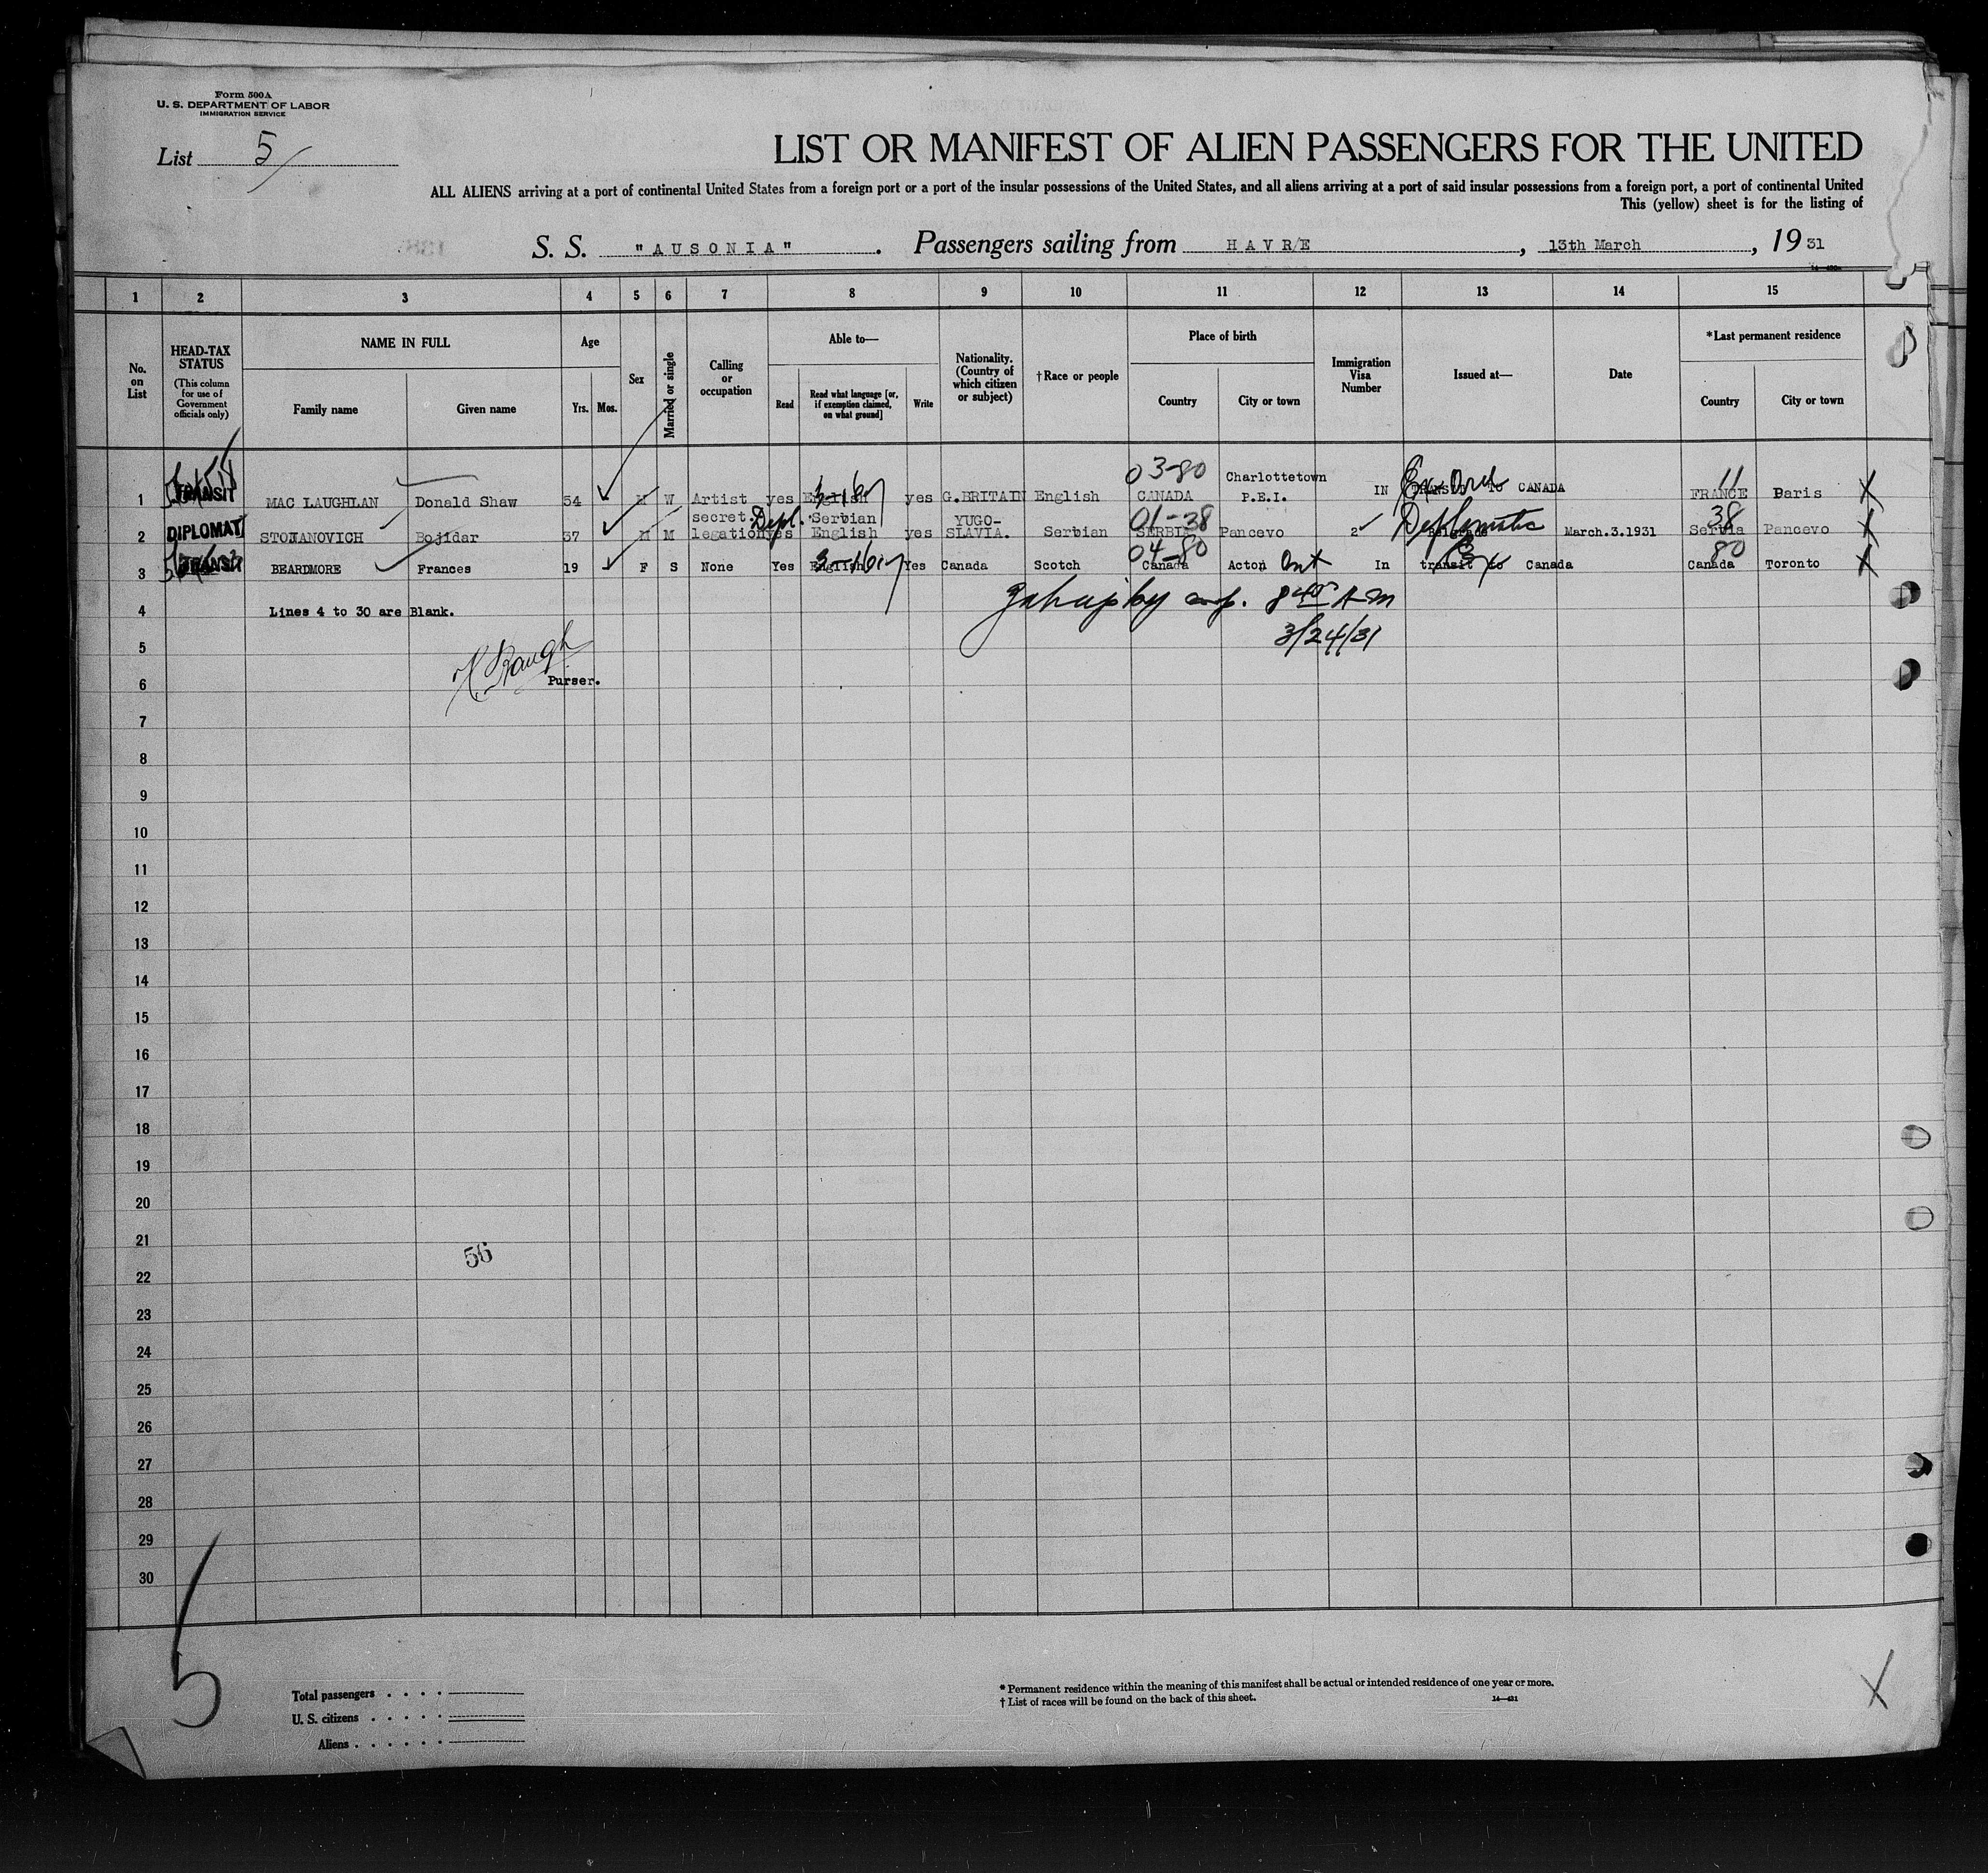 Form 500A
U. S. DEPARTMENT OF LABOR
IMMIGRATION SERVICE
List 5
LIST OR MANIFEST OF ALIEN PASSENGERS FOR THE UNITED
ALL ALIENS arriving at a port of continental United States from a foreign port or a port of the insular possessions of the United States, and all aliens arriving at a port of said insular possessions from a foreign port, a port of continental United
This (yellow) sheet is for the listing of
S. S. "AUSONIA". Passengers sailing from HAVRE, 13th March, 1931
1 2 3 4 5 6 7 8 9 10 11 12 13 14 15
No. on List
HEAD-TAX STATUS
(This column for use of Government officials only)
NAME IN FULL
Family name Given name
Age
Yrs. Mos.
Sex
Married or single
Calling or occupation
Able to—
Read Read what language [or, if exemption claimed, on what ground] Write
Nationality. (Country of which citizen or subject)
†Race or people
Place of birth
Country City or town
Immigration Visa Number
Issued at—
Date
*Last permanent residence
Country City or town
03-80 Charlottetown 11
1 TRANSIT MAC LAUGHLAN Donald Shaw 54 M W Artist yes English yes G.BRITAIN English CANADA P.E.I. IN TRANSIT TO CANADA FRANCE Paris X
secret. Dipl. Serbian YUGO- 01-38 Diplomatic 38
2 DIPLOMAT STOJANOVICH Bojidar 37 M M legation yes English yes SLAVIA. Serbian SERBIA Pancevo 2 Belgrade March.3.1931 Serbia Pancevo X
04-80 80
3 TRANSIT BEARDMORE Frances 19 F S None Yes English Yes Canada Scotch Canada Acton Ont In transit to Canada Canada Toronto X
4 Lines 4 to 30 are Blank. 8 40 AM
3/24/31
5
6 Purser.
7
8
9
10
11
12
13
14
15
16
17
18
19
20
21
56
22
23
24
25
26
27
28
29
30
5
X
Total passengers
U. S. citizens
Aliens
* Permanent residence within the meaning of this manifest shall be actual or intended residence of one year or more.
† List of races will be found on the back of this sheet.
14—431